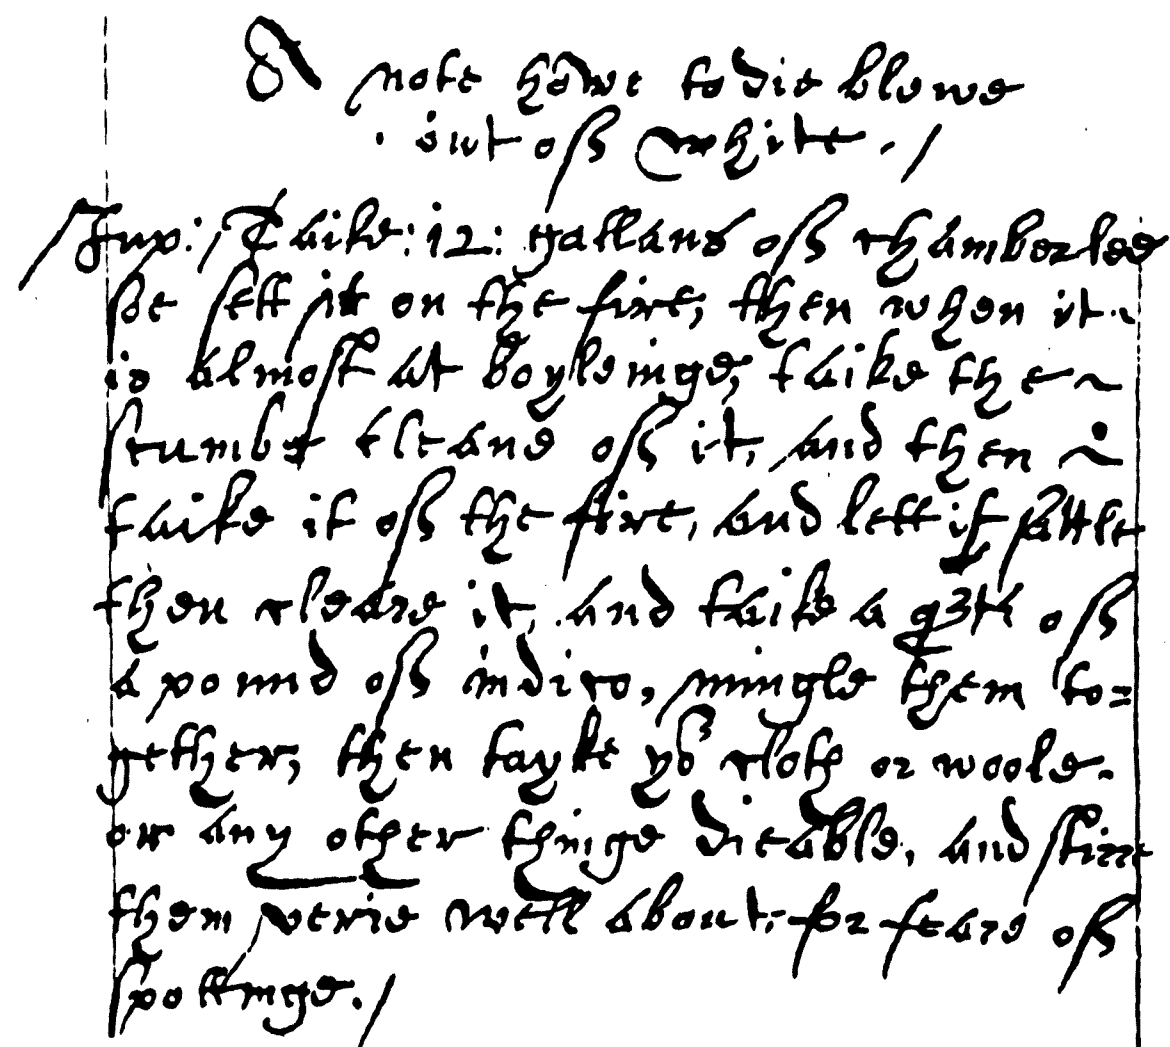 A note howe to die blewe
owt off white ./
Inp: Taike : 12 : gallans off chamberlee
& sett it on the fire, then when it
is almost at boyleinge, taike the
scumbe cleane off it, and then
taike it off the fire, and lett it sattle
then cleare it, and taike a qrte off
a pound off indico, mingle them to=
gether, then tayke yor cloth or woole
or any other thinge dieable, and stirre
them verie well about, for feare off
spottinge ./